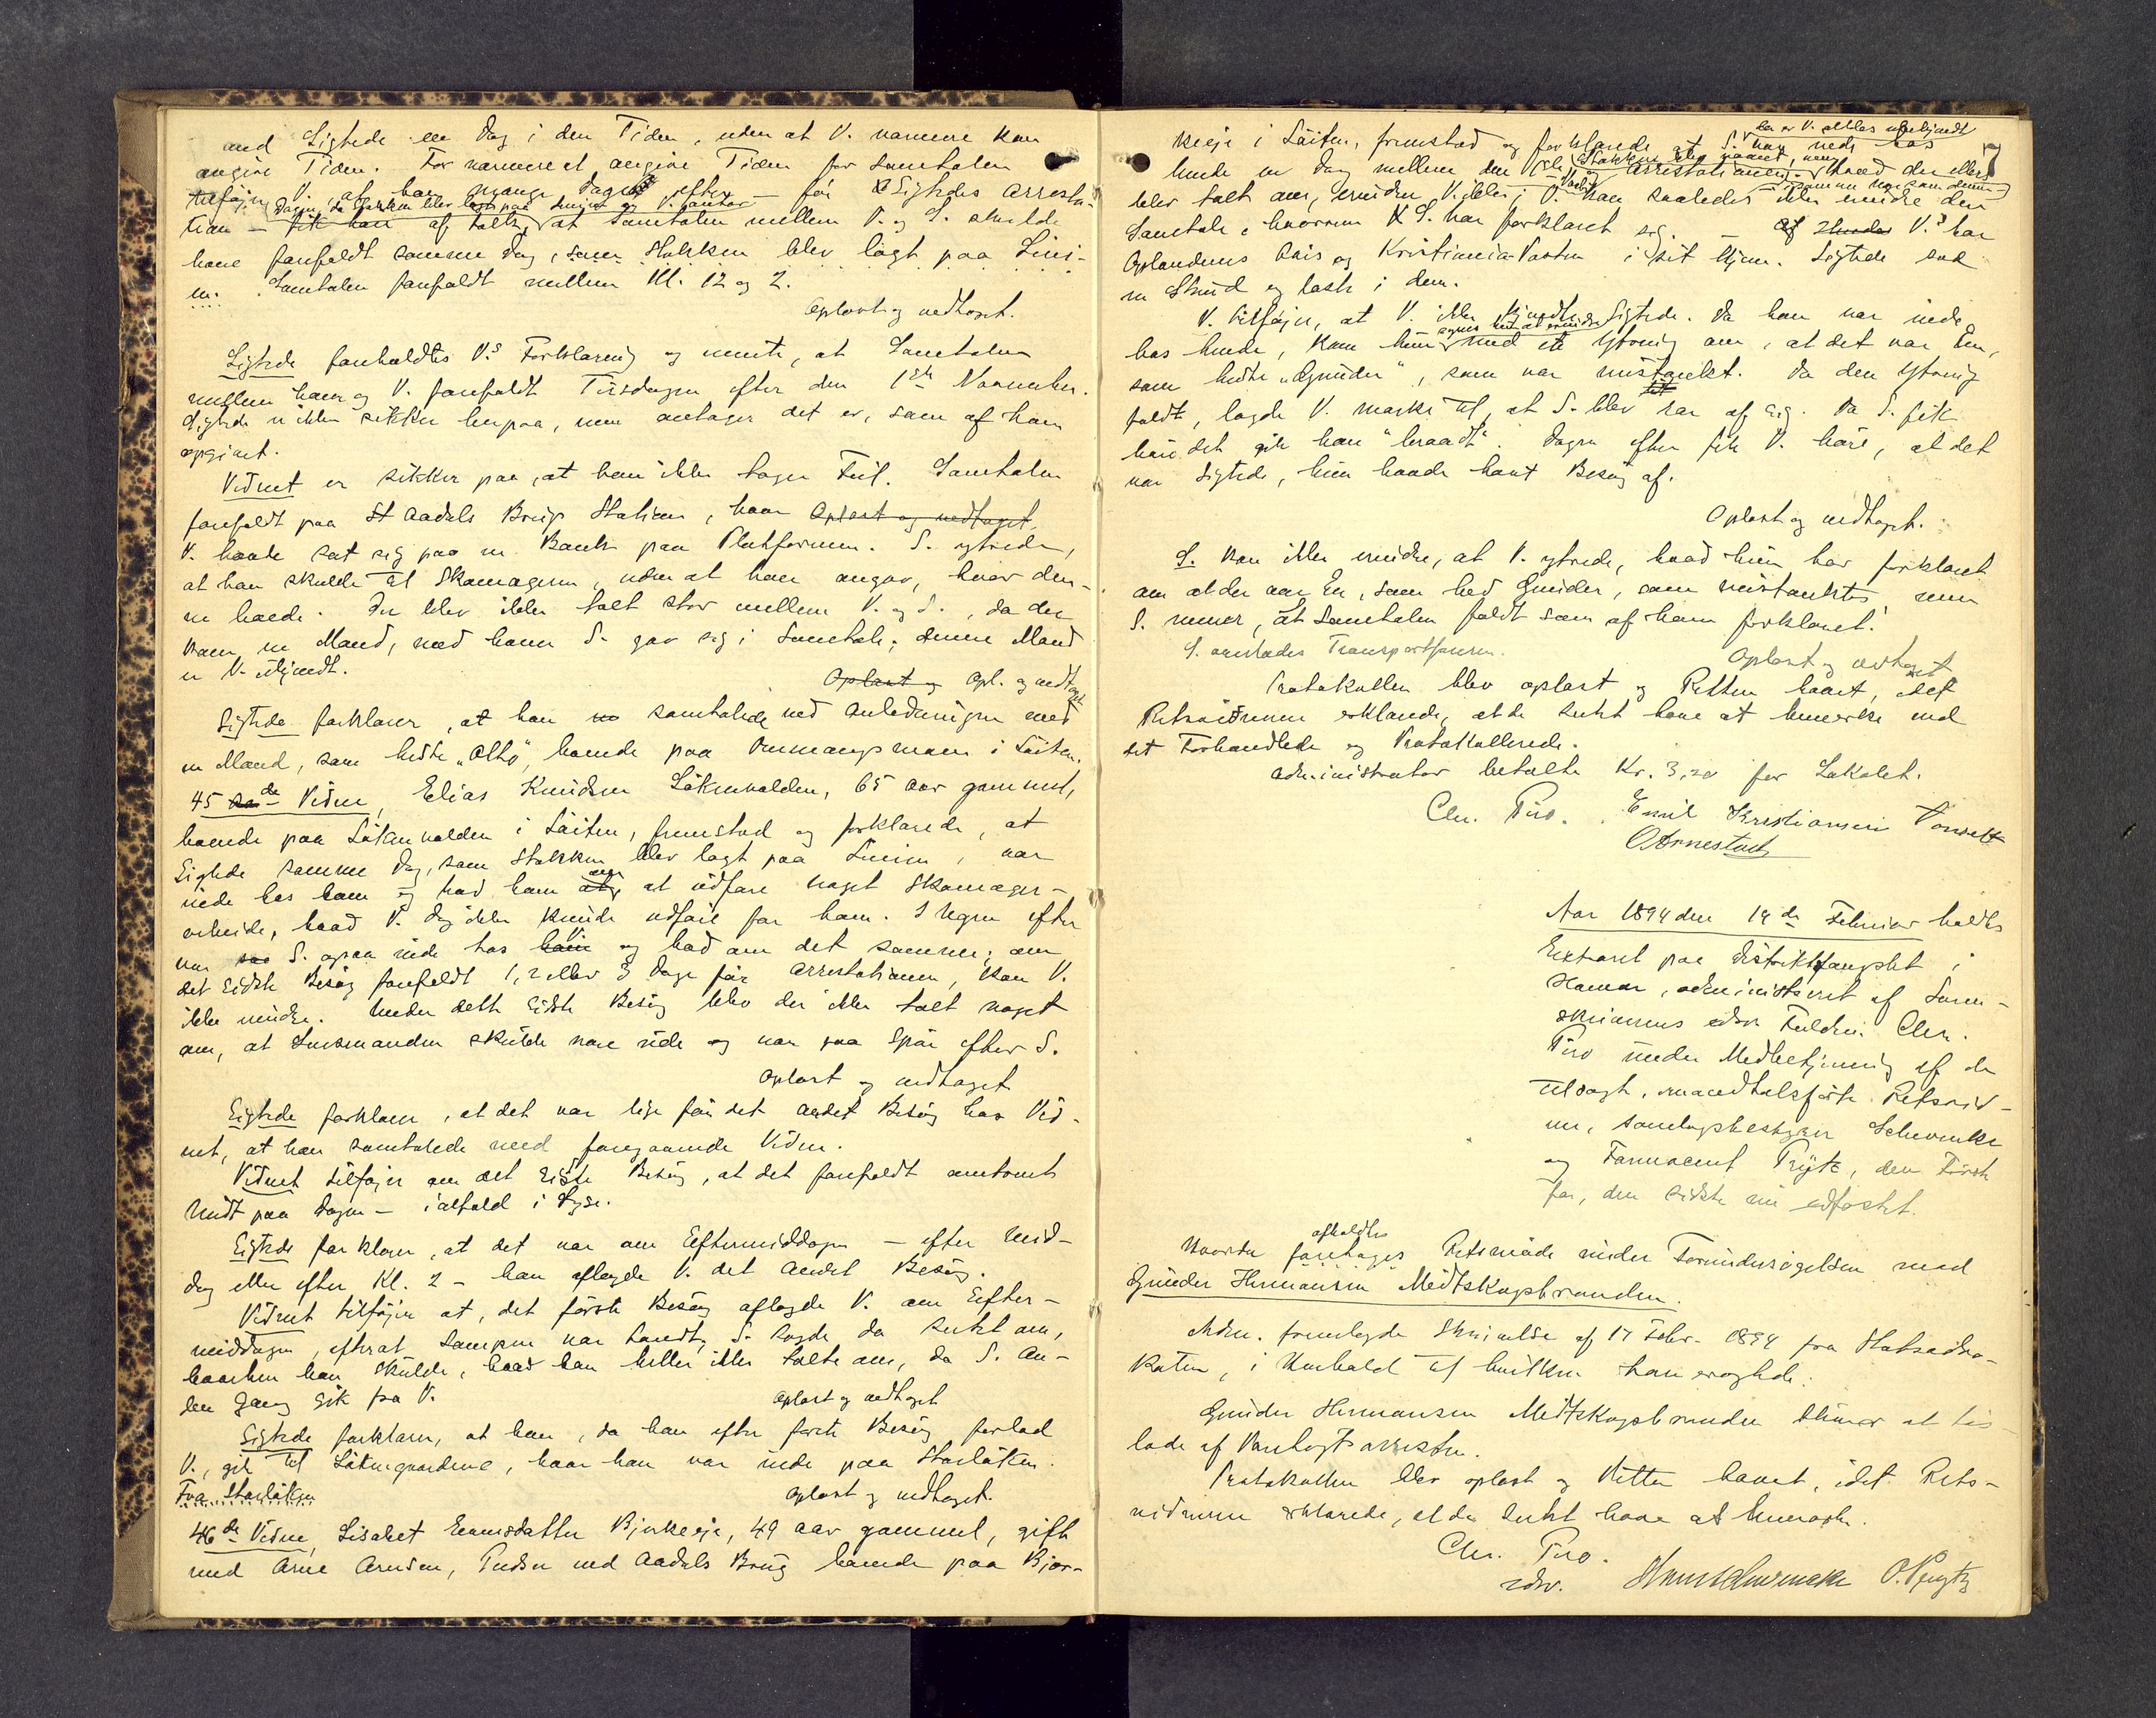 med Sigtede en Dag i den Tiden, uden at V. nærmere kan
angive Tiden. For nærmere at angive Tiden for Samtalen
tilføjer V., at han mange Dage efter – før Sigtedes Arresta-
Dagen, da Stokken blev lagt paa Linjen og V. antar
tion – fik han af Folk, at Samtalen mellem V. og S. skulde
have forefaldt samme Dag, som Stokken blev lagt paa Lini-
en. Samtalen forefaldt mellem Kl. 12 og 2.
Oplæst og vedtaget.
Sigtede foreholdtes V.s Forklaring og mente, at Samtalen
mellem ham og V. forefaldt Tirsdagen efter den 1ste November.
Sigtede er ikke sikker herpaa, men antager det er, som af ham
opgivet.
Vidnet er sikker paa, at han ikke tager Feil. Samtalen
forefaldt paa Aadals Brug Station, hvor Oplæst og vedtaget.
V. havde sat sig paa en Bænk paa Platformen. S. ytrede,
at han skulde til Skomageren, uden at han angav, hvor den-
ne boede. Der blev ikke talt stort mellem V. og S., da der
kom en Mand, med hvem S. gav sig i Samtale; denne Mand
er V. ukjendt.
Oplæst og Opl. og vedtaget
Sigtede forklarer, at han samtalede ved Anledningen med
en Mand, som hedte "Otto", boende paa Ommangsmoen i Løiten.
45de Vidne, Elias Knudsen Løkenvolden, 65 Aar gammel,
boende paa Løkenvolden i Løiten, fremstod og forklarede, at
Sigtede samme Dag, som Stokken blev lagt paa Linien, var
inde hos ham og bad ham om at udføre noget Skomager-
arbeide, hvad V. dog ikke kunde udføre for ham. Ugen efter
var S. ogsaa inde hos V. og bad om det samme; om
det sidste Besøg forefaldt 1, 2 eller 3 Dage før Arrestationen, kan V.
ikke erindre. Under dette sidste Besøg blev der ikke talt noget
om, at Lensmanden skulde være ude og var paa Spor efter S.
Oplæst og vedtaget
Sigtede forklarer, at det var lige før det andet Besøg hos Vid-
net, at han samtalede med foregaaende Vidne.
Vidnet tilføjer om det sidste Besøg, at det forefaldt omtrent
midt paa Dagen – ialfald i Lyse.
Sigtede forklarer, at det var om Eftermiddagen – efter Mid-
dag eller efter Kl. 2 – han aflagde V. det andet Besøg.
Vidnet tilføjer at, det første Besøg aflagde V. om Efter-
middagen, efterat Lampen var tændt, S. sagde da intet om,
hvorhen han skulde, hvad han heller ikke talte om, da S. an-
den Gang gik fra V.
Oplæst og vedtaget
Sigtede forklarer, at han, da han efter første Besøg forlod
V., gik til Løkengaardene, hvor han var inde paa Storløken.
Fra Storløken
Oplæst og vedtaget.
46de Vidne, Lisabet Evensdatter Bjørkeeje, 49 Aar gammel, gift
med Arne Arnesen, Pudser ved Aadals Brug boende paa Bjør-
keeje i Løiten, fremstod og forklarede at S. var nede hos
der er V. ellers ubekjendt
hende en Dag mellem den Arrestationen. Hvad der ellers
blev talt om, erindrer V. ikke; V. kan saaledes ikke erindre den
Samtale, hvorom S. har forklaret sig. – V.s har
Oplandenes Avis og Kristiania-Posten i sit Hjem. Sigtede sad
en Stund og læste i dem.
V. tilføjer, at V. ikke kjendte Sigtede. Da han var inde
hos hende, kom hun synes hun at erindre med en Ytring om, at det var En,
som hedte "Gunder", som var mistænkt. Da den Ytring
faldt, lagde V. Mærke til, at S. blev rar af sig. Da S. fik
høre det gik han "braadt". Dagen efter fik V. høre, at det
var Sigtede, hun havde havt Besøg af.
Oplæst og vedtaget.
S. kan ikke erindre, at V. ytrede, hvad hun har forklaret
om at der var En, som hed Gunder, som mistænktes, men
S. mener, at Samtalen faldt som af ham forklaret.
S. anstodes Transportfanen.
Oplæst og vedtaget
Protokollen blev oplæst og Retten hævet, idet
Retsvidnerne erklærede, at de intet have at bemærke ved
det Forhandlede og Protokollerede.
Administrator betalte Kr. 3,20 for Lokalet.
Chr. Piro. Emil Kristiansen Tønseth
O Arnestad
Aar 1894 den 19de Februar holdtes
Extraret paa Distriktsfængslet i
Hamar, administreret af Soren-
skriverens edsv. Fuldm. Chr.
Piro under Medbetjening af de
tilsagte, mandtalsførte Retsvid-
ner, Samlagsbestyrer Schwencke
og Farmaceut Prytz, den Første
før, den sidste nu edfæstet.
afholdtes
Hvorda foretoges Retsmøde under Forundersøgelsen mod
Gunder Hermansen Meitskogsbraaden.
Adm. fremlagde Skrivelse af 17 Febr. 1894 fra Statsadvo-
katen, i Henhold til hvilken han eragtede:
Gunder Hermansen Meitskogsbraaden bliver at løs-
lade af Varetægtsarresten.
Protokollen blev oplæst og Retten hævet, idet Rets-
vidnerne erklærede, at de intet have at bemærke.
Chr. Piro.
edsv. Schwencke O. Prytz